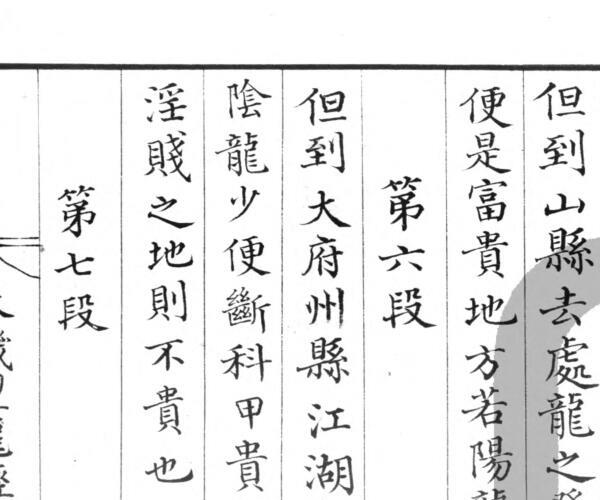 但到山縣去處龍之
便是富貴地方若陽龍
第六段
但到大府州縣江湖
陰龍少便斷科甲貴
淫賤之地則不貴也
第七段